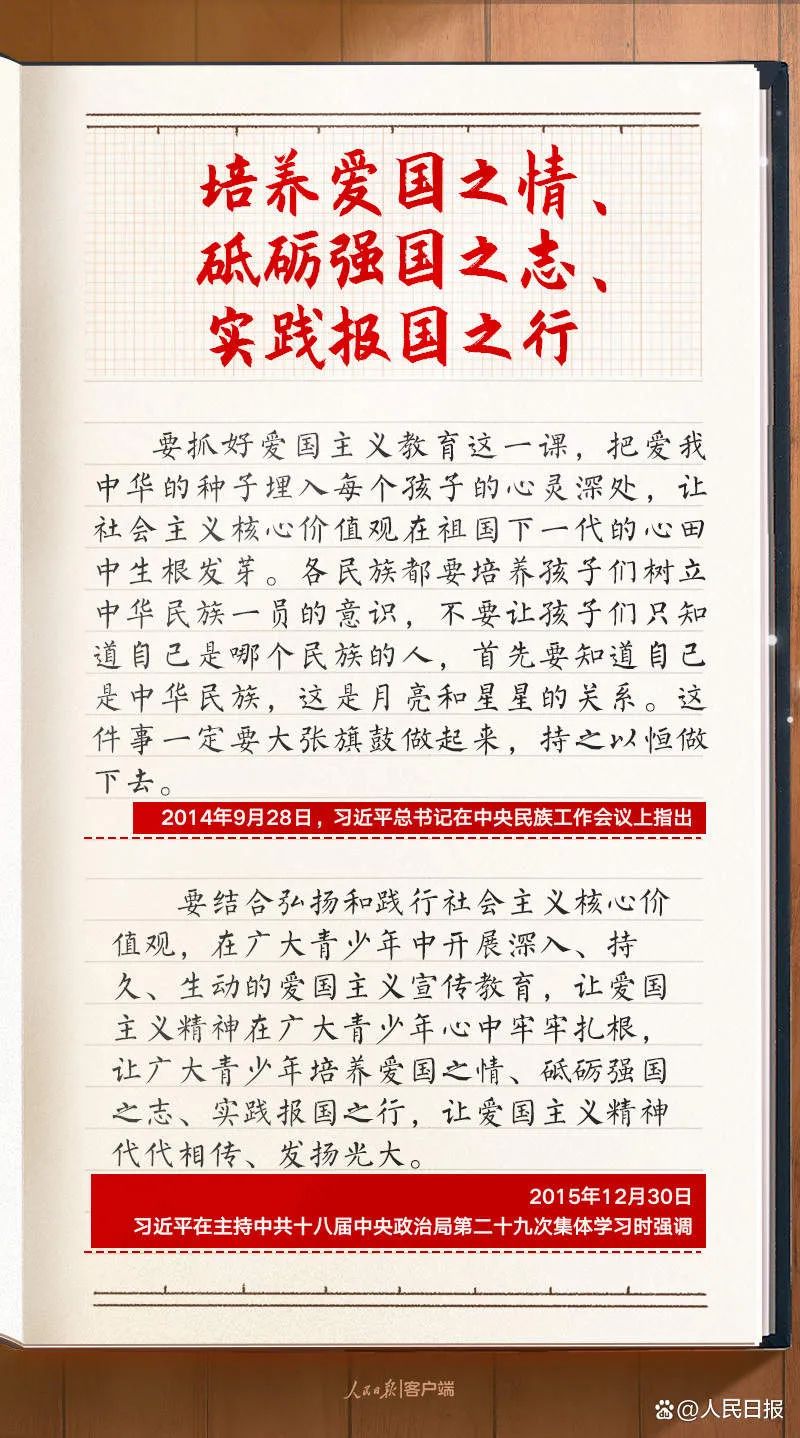 培养爱国之情、
砥砺强国之志、
实践报国之行
要抓好爱国主义教育这一课，把爱我
中华的种子埋入每个孩子的心灵深处，让
社会主义核心价值观在祖国下一代的心田
中生根发芽。各民族都要培养孩子们树立
中华民族一员的意识，不要让孩子们只知
道自己是哪个民族的人，首先要知道自己
是中华民族，这是月亮和星星的关系。这
件事一定要大张旗鼓做起来，持之以恒做
下去。
2014年9月28日，习近平总书记在中央民族工作会议上指出
要结合弘扬和践行社会主义核心价
值观，在广大青少年中开展深入、持
久、生动的爱国主义宣传教育，让爱国
主义精神在广大青少年心中牢牢扎根，
让广大青少年培养爱国之情、砥砺强国
之志、实践报国之行，让爱国主义精神
代代相传、发扬光大。
2015年12月30日
习近平在主持中共十八届中央政治局第二十九次集体学习时强调
人民日报|客户端
@人民日报